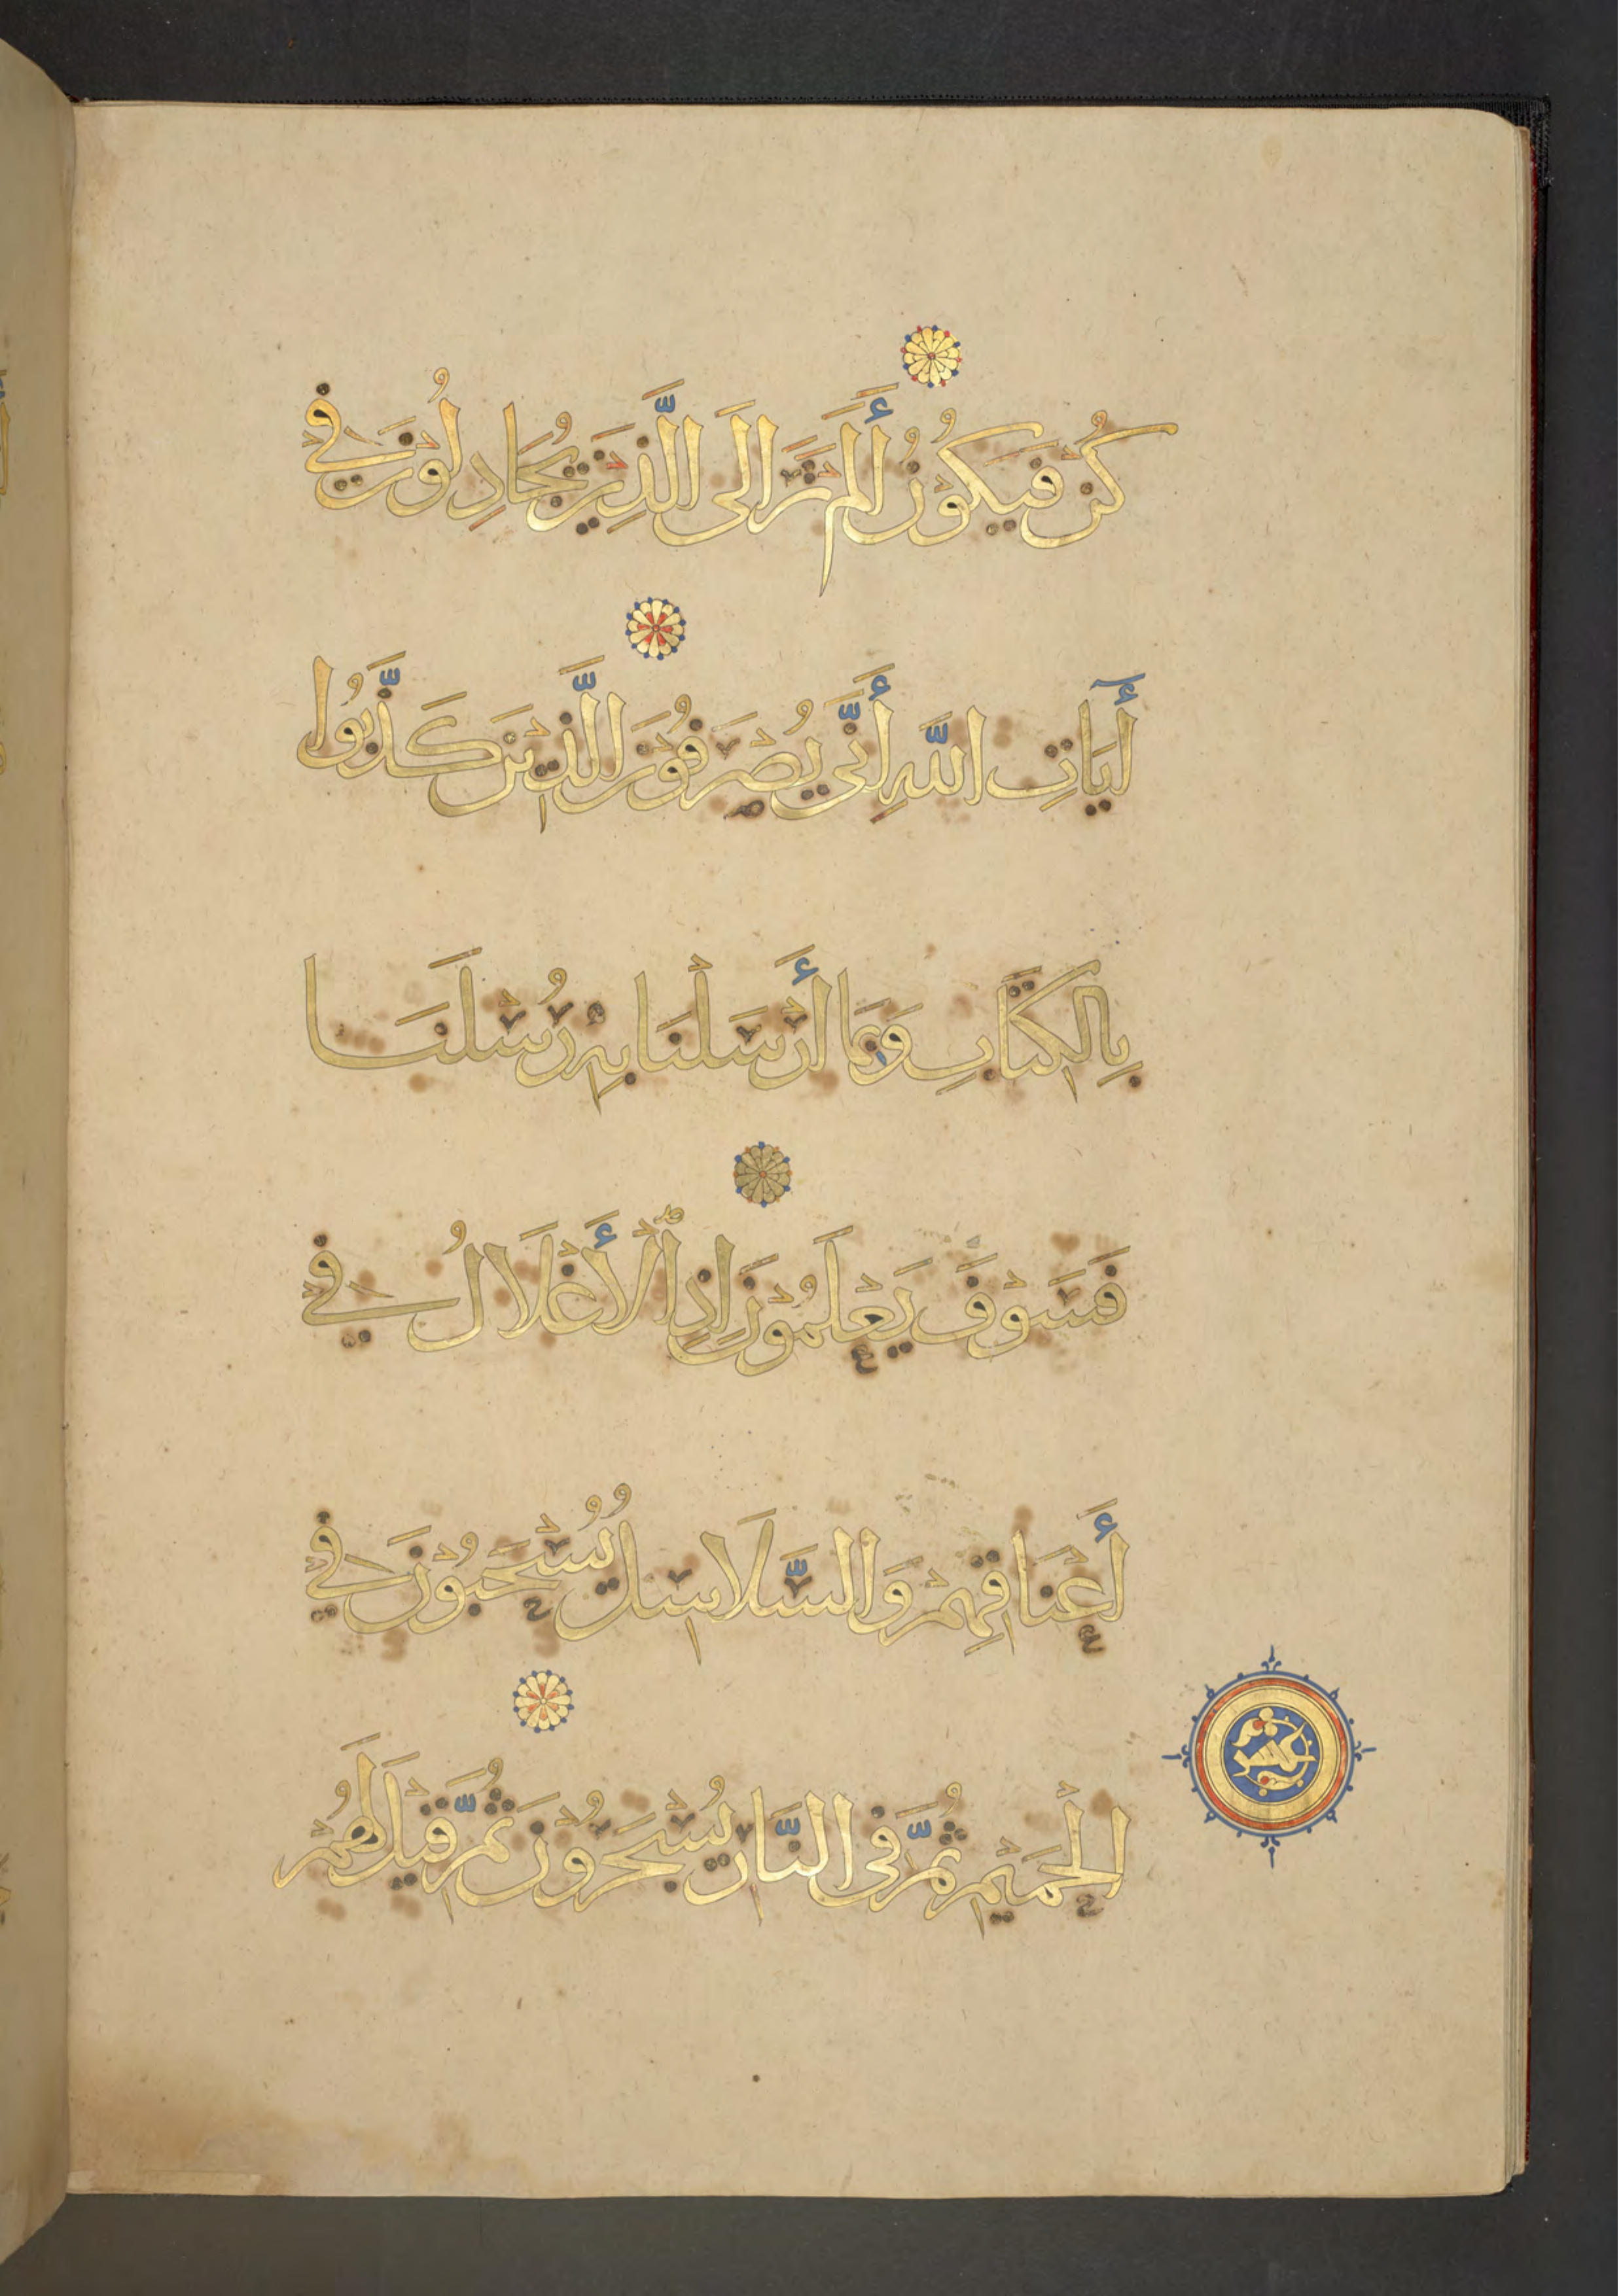 كُنْ فَيَكُوْنُ أَلَمْ تَرَ اِلَى الَّذِيْنَ يُجَادِلُوْنَ فِيْ
أٓيَاتِ اللَّهِ أَنَّى يُصْرَفُوْنَ الَّذِيْنَ كَذَّبُوا
بِالْكِتَابِ وَبِمَا أَرْسَلْنَا بِهِ رُسُلَنَا
فَسَوْفَ يَعْلَمُوْنَ اِذِ الْأَغْلَالُ فِيْ
أَعْنَاقِهِمْ وَالسَّلَاسِلُ يُسْحَبُوْنَ فِيْ
الْحَمِيْمِ ثُمَّ فِى النَّارِ يُسْجَرُوْنَ ثُمَّ قِيْلَ لَهُمْ
عشر